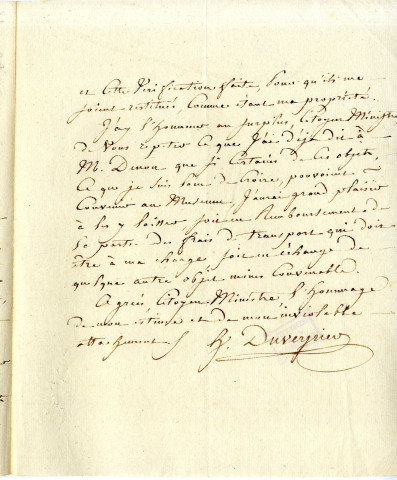 et cette vérification faite, pour qu'ils me
soient restitués, comme étant ma propriété.
J'ay l'honneur au surplus, Citoyen Ministre,
de vous repeter ce que j'ai déja dit à
M. Denon que si certains de ces objets,
ce que je suis loin de croire, pouvoient
convenir au Museum, j'aurai grand plaisir
à les y laisser soit en remboursement de
la partie des frais de transport qui doit
être à ma charge soit en échange de
quelque autre objet moins convenable.
Agréés Citoyen Ministre l'hommage
de mon estime et de mon inviolable
attachement
h. Duvernier